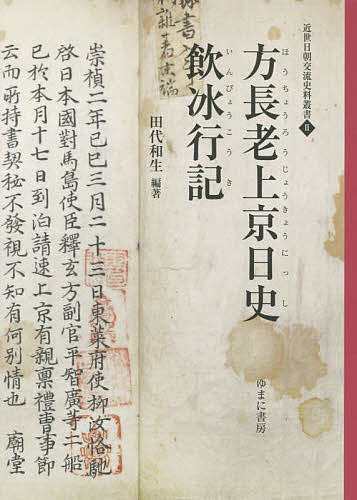 近世日朝交流史料叢書 Ⅱ
方長老上京日史
ほうちょうろうじょうきょうにっし
飲冰行記
いんぴょうこうき
田代和生 編著
ゆまに書房
崇禎二年己巳三月二十三日東萊府使柳汝恪馳
啓日本國對馬島使臣釋玄方副官平智廣等二船
已於本月十七日到泊請速上京有親稟禮曹事節
云而所持書契秘不發視不知有何别情也 廟堂